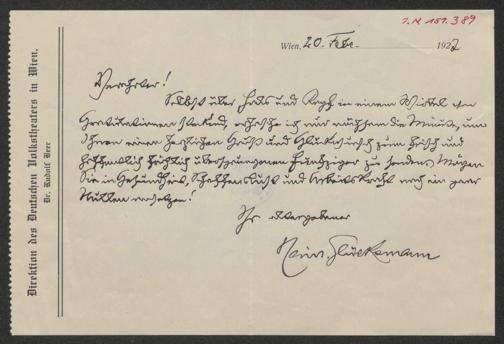 I.N 151.389
Direktion des Deutschen Volkstheaters in Wien.
Dr. Rudolf Beer
Wien, 20. Febr. 1922
Verehrter!
Selbst über Hals und Kopf in einem Wirbel von
Gratulationen steckend, erhasche ich nur mühsam die Minute, um
Ihnen einen herzlichen Gruß und Glückwunsch zum frisch und
hoffentlich fröhlich übersprungenen Fünfziger zu senden. Mögen
Sie in Gesundheit, Schaffenslust und Arbeitskraft noch ein paar
Nullen ansetzen!
Ihr ergebener
Heinr. Glücksmann